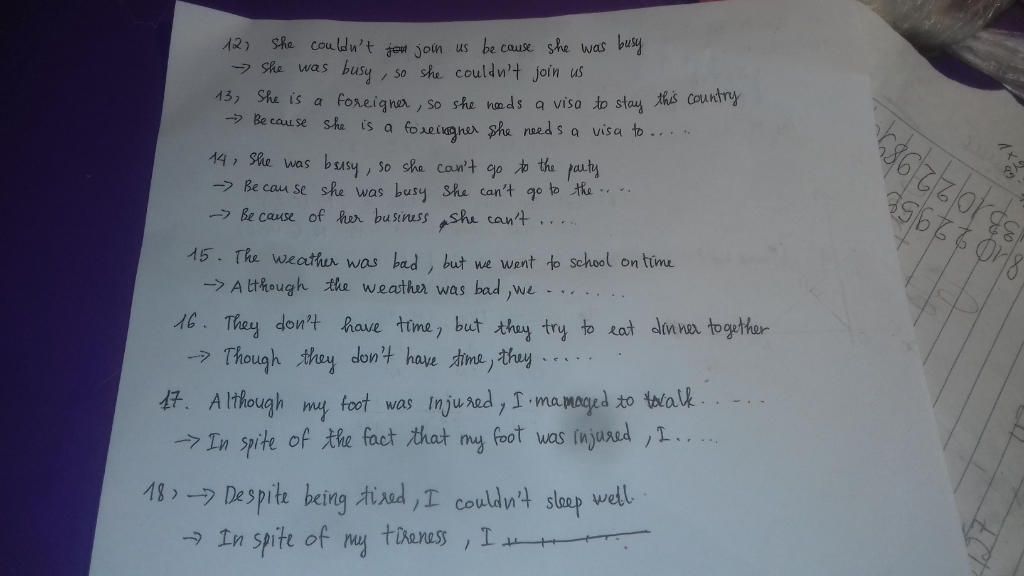 12, She couldn't join us because she was busy
→ She was busy, so she couldn't join us
13, She is a foreigner, so she needs a visa to stay this country
→ Because she is a foreingner she needs a visa to.....
14, She was busy, so she can't go to the party
→ Because she was busy she can't go to the.....
→ Because of her business, she can't ....
15. The weather was bad, but we went to school on time
→ Although the weather was bad, we .......
16. They don't have time, but they try to eat dinner together
→ Though they don't have time, they .....
17. Although my foot was injured, I managed to walk......
→ In spite of the fact that my foot was injured, I.....
18, → Despite being tired, I couldn't sleep well.
→ In spite of my tireness, I